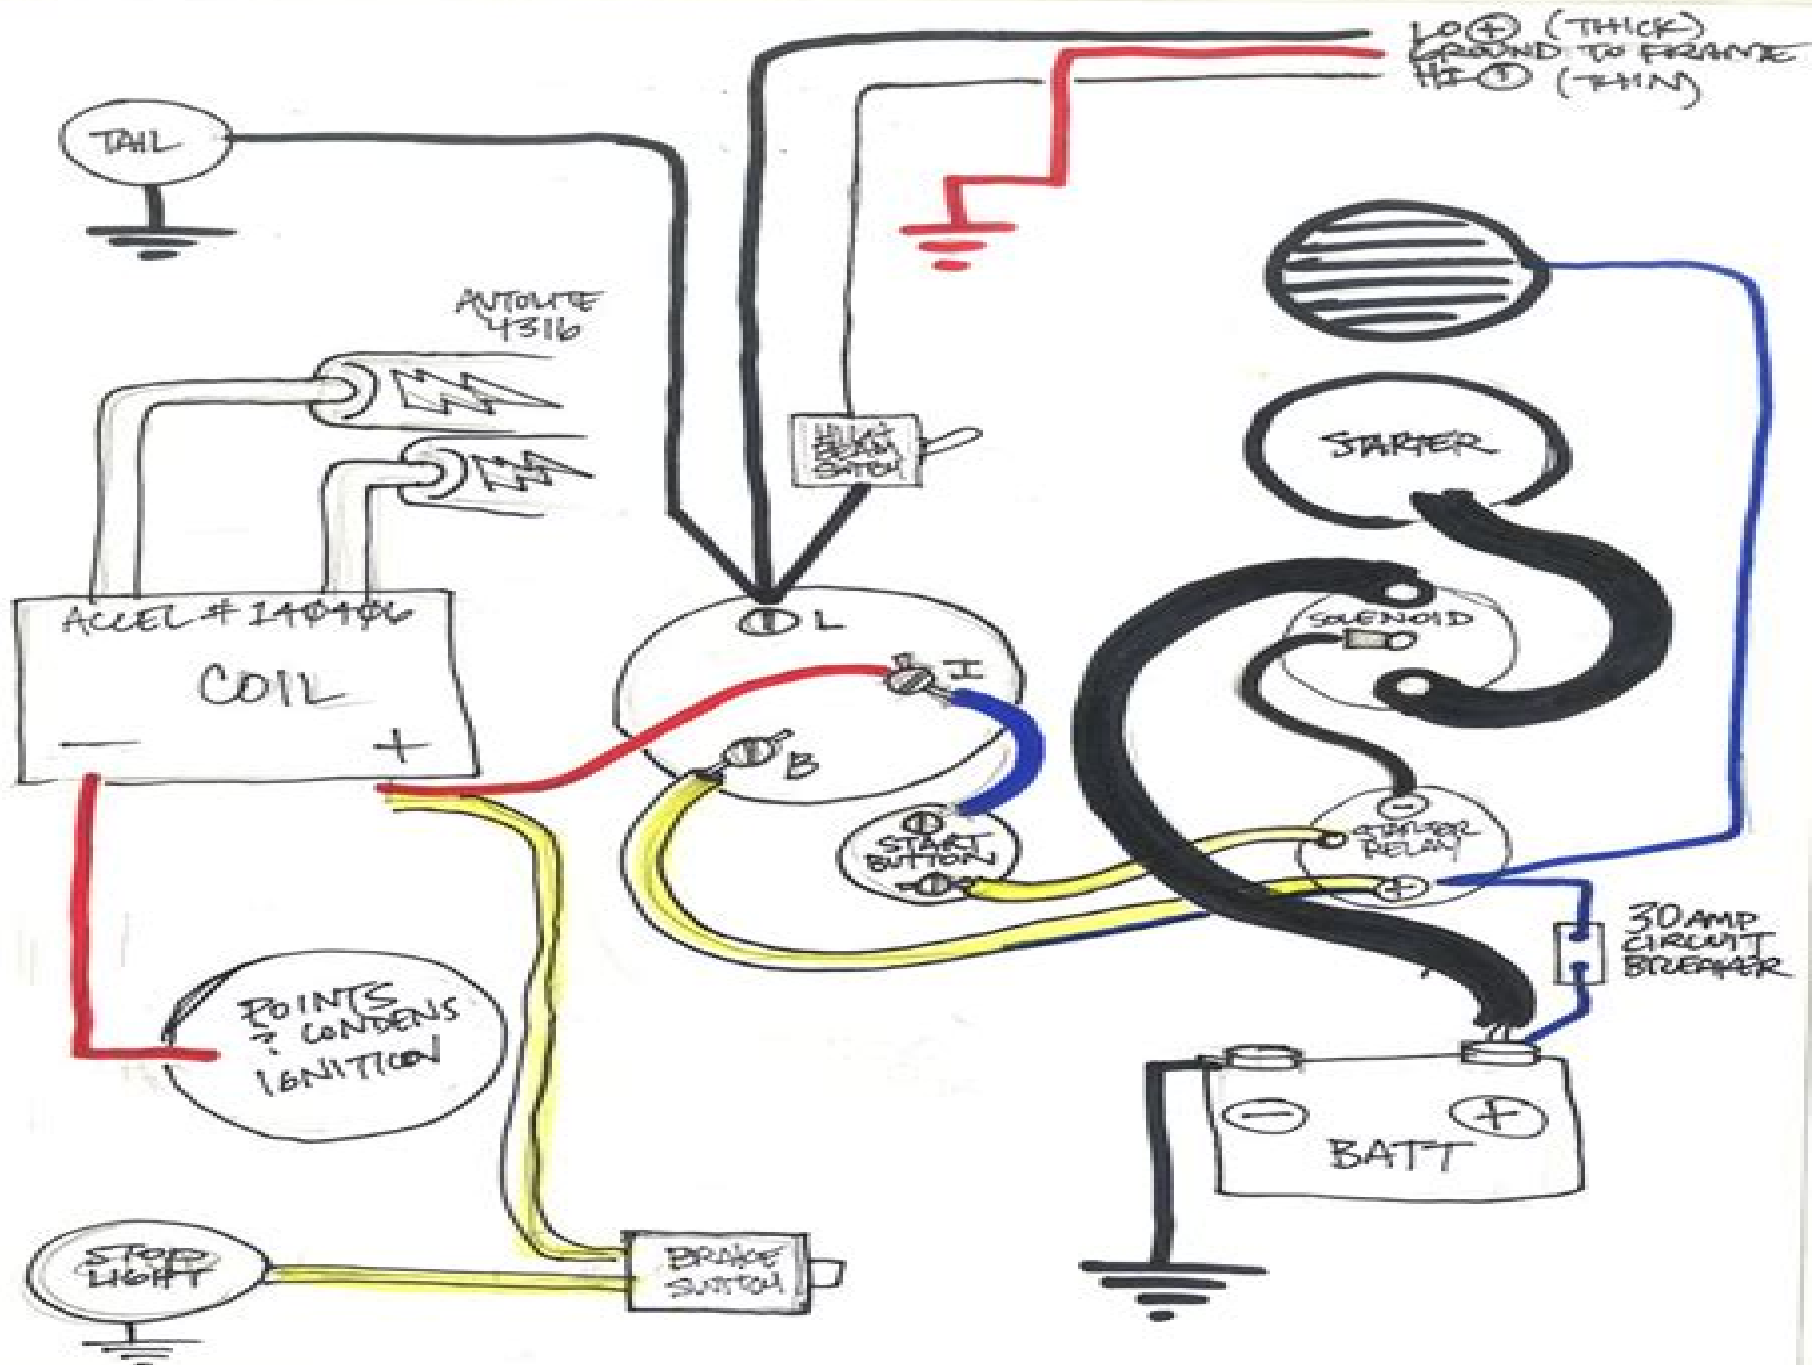 LO + (THICK)
GROUND TO FRAME
HI + (THIN)
TAIL
AUTOLITE
4316
STARTER
SWITCH
ACCEL # 140406
COIL
- +
L
I
B
SOLENOID
START
BUTTON
-
STARTER
RELAY
+
30 AMP
CIRCUIT
BREAKER
POINTS
? CONDENS
IGNITION
- +
BATT
STOP
LIGHT
BRAKE
SWITCH